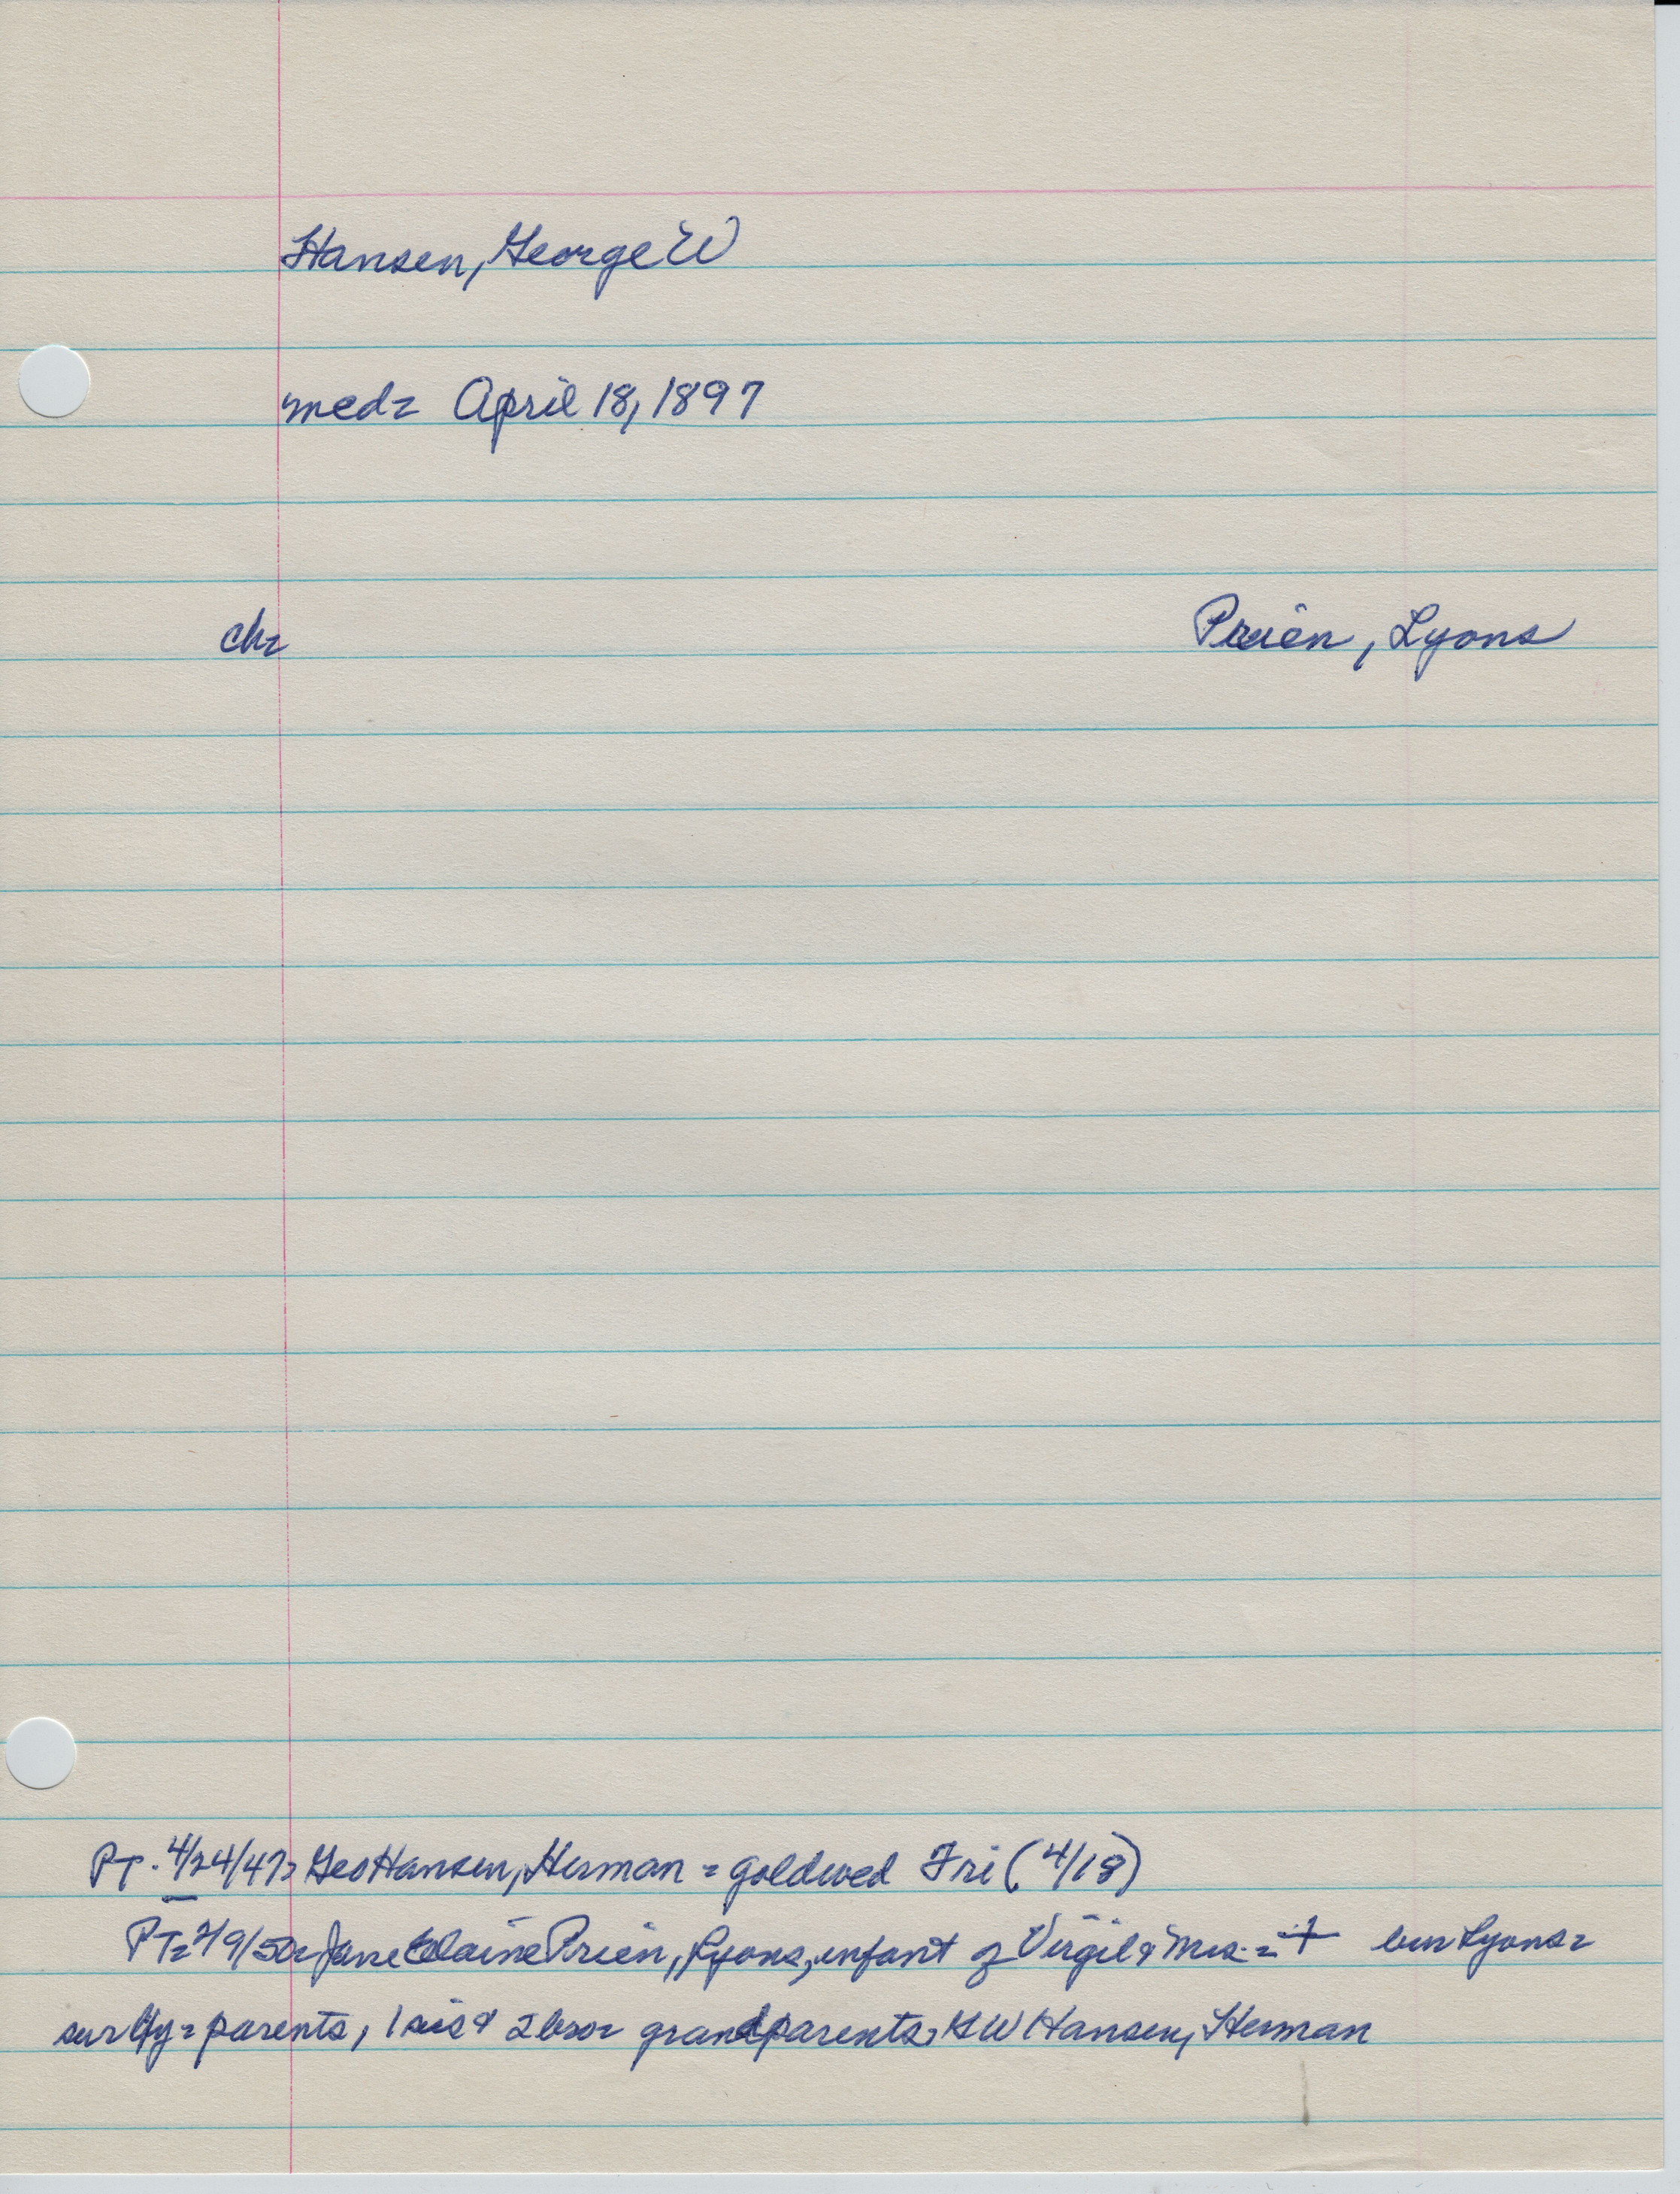 Hansen, George W
med= April 18, 1897
ch= Prien, Lyons
PT. 4/24/47= Geo Hansen, Herman = goldwed Fri (4/18)
PT= 2/9/50= Jane Elaine Prien, Lyons, infant of Virgil & Mrs. = + bur Lyons=
sur by= parents, 1 sis & 2 bro= grandparents, GW Hansen, Herman